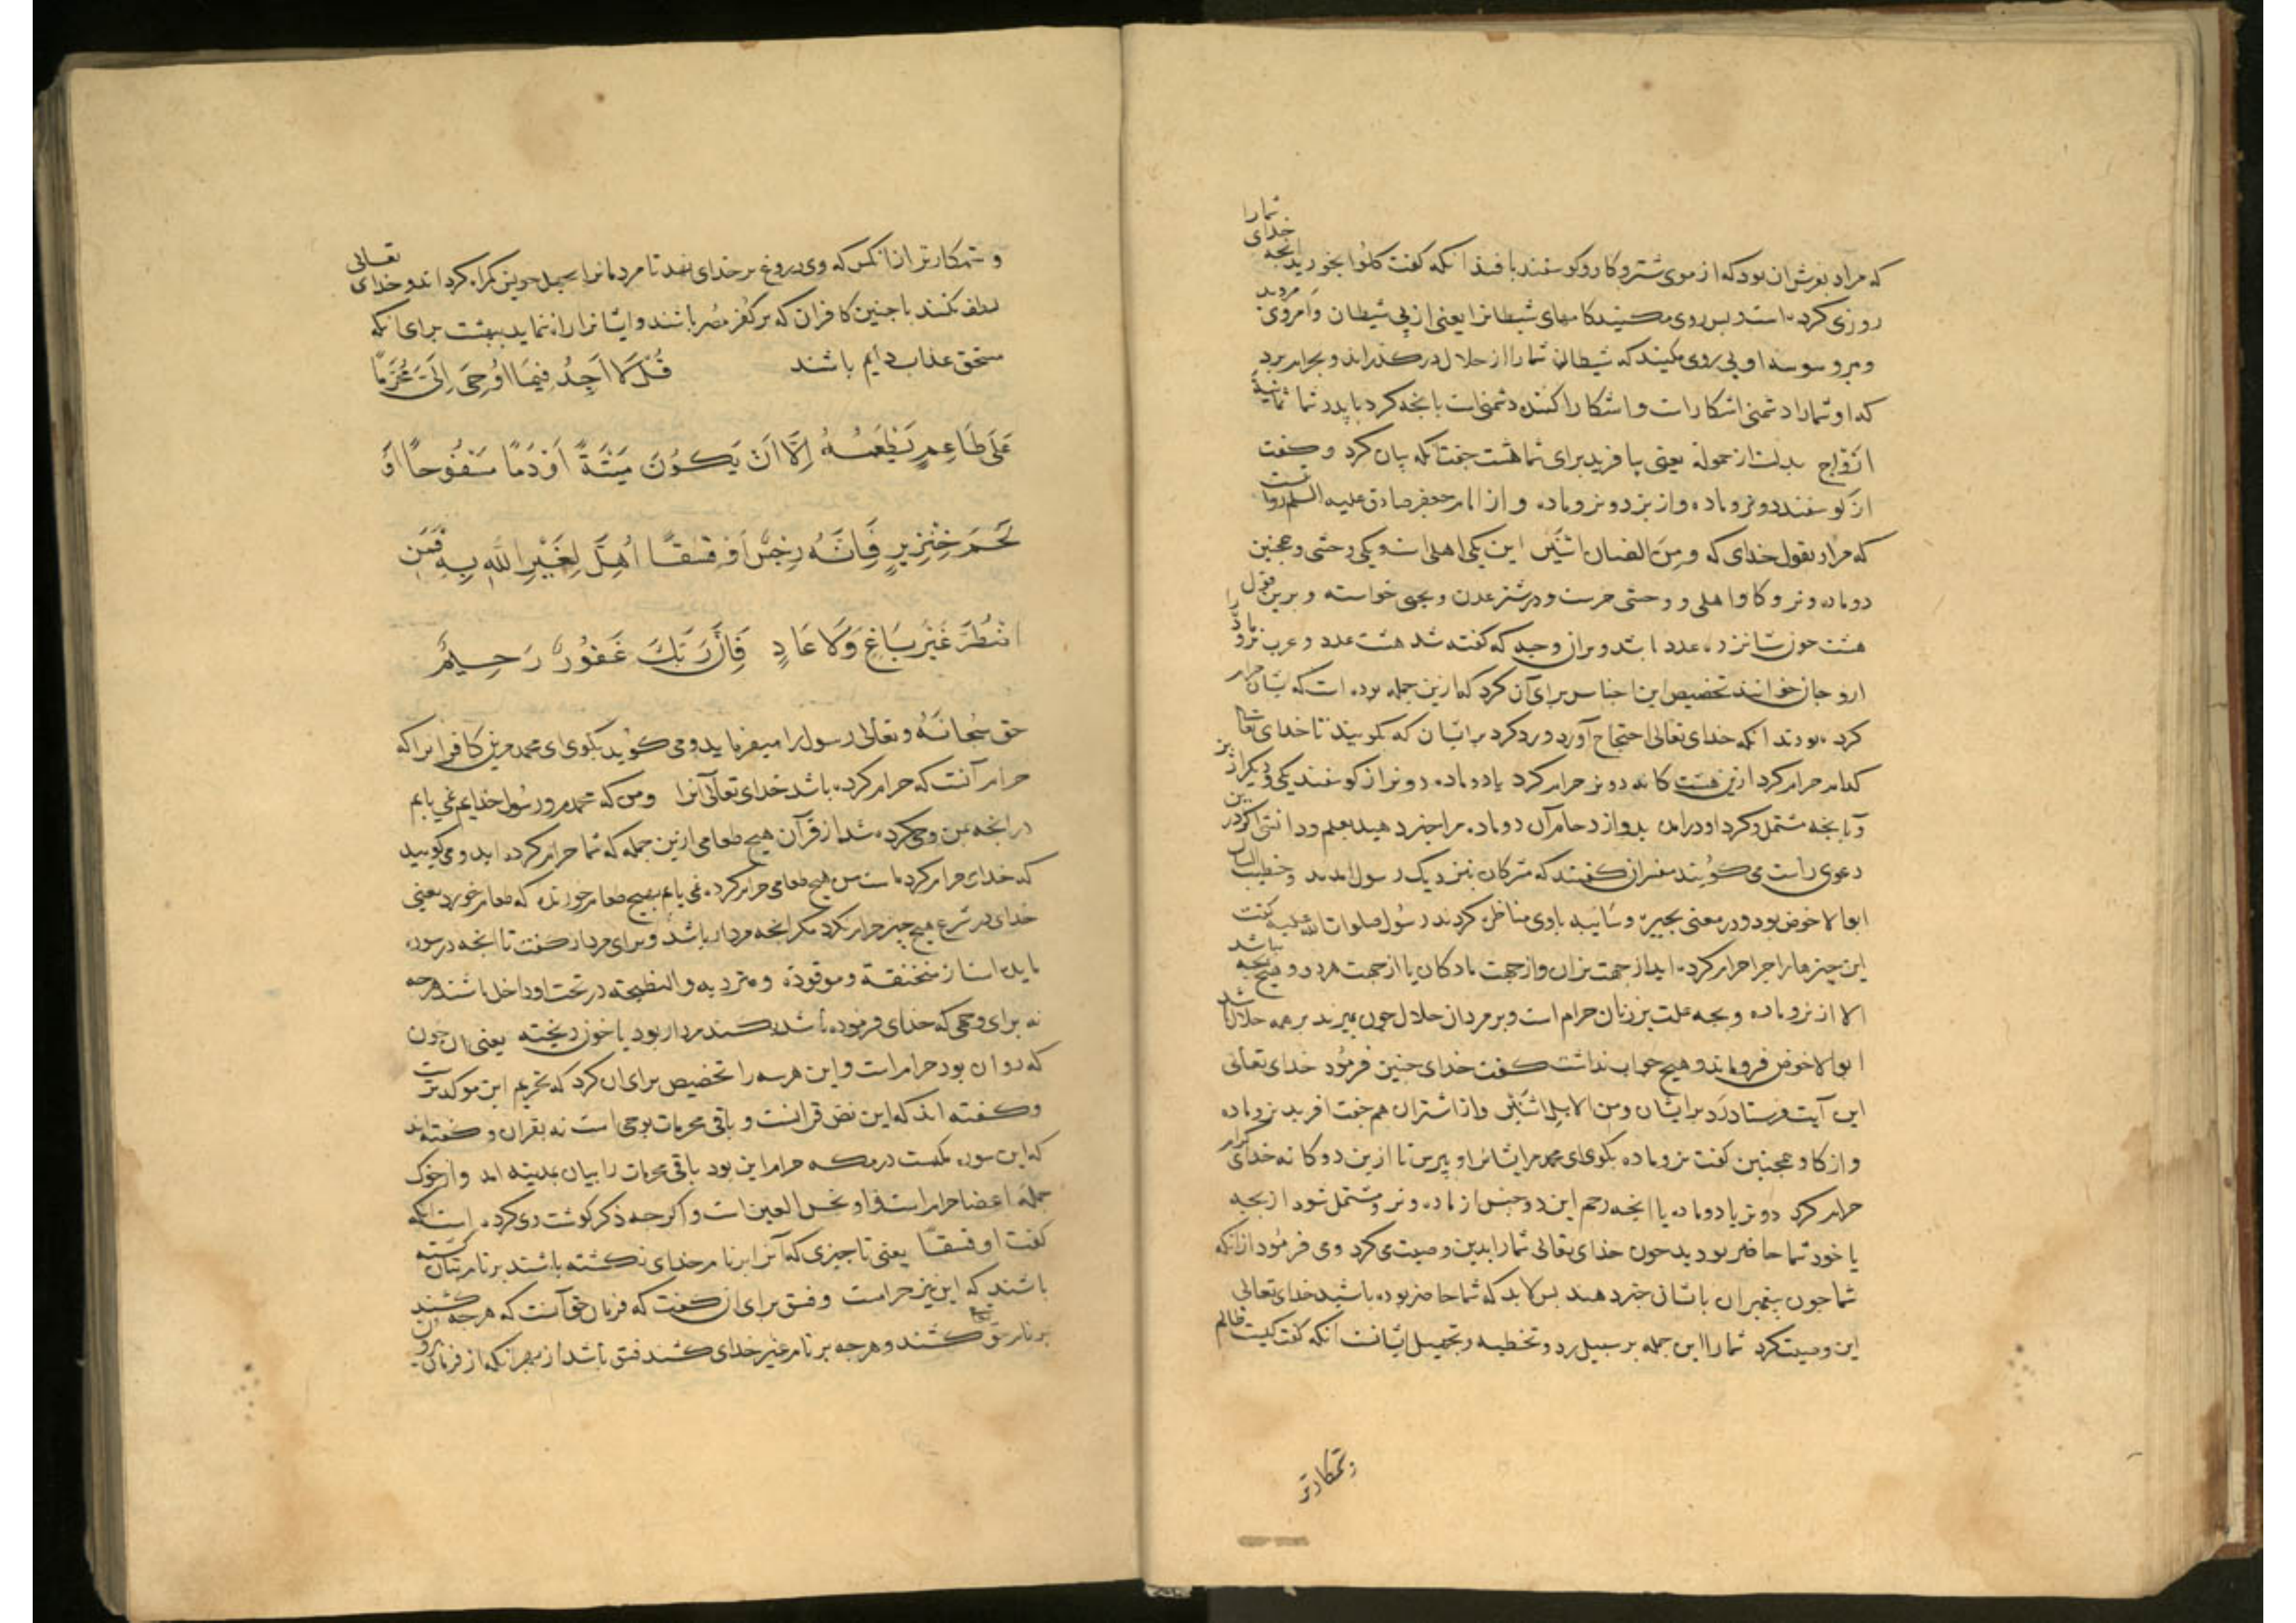 که مراد بفرش ان بود که از موی شتر و کاو و کوسفند بافند انکه کفت کلوا بخورید انجه خدای شما را
روزی کرده است و بس روی مکنید کامهای شیطانرا یعنی از پی شیطان مروید و امر وی
و بر وسوسه او پی روی مکنید که شیطان شما را از حلال در کذراند و بحرام برد
که او شما را دشمنی اشکارات و اشکارا کننده دشمنی است بانجه کرد با پدر شما ثمانیة
ازواج بدلست از حمولة یعنی بیافرید برای شما هشت جفت انکه بیان کرد و کفت
از کوسفند دو نر و ماده و از بز دو نر و ماده و از امام جعفر صادق علیه السلم روایت
که مراد بقول خدای که و من الضان اثنین این یکی اهلی است و یکی وحشی و همجنین
دو ماده و نر و کاو اهلی و وحشی و در شتر عدن و بختی خواسته و برین قول
هشت جون شانزده عدد باشد و بران وجه که کفته شد هشت عدد و عرب نر و ماده را
ازواج خوانند تخصیص این اجناس برای آن کرد که ازین جمله بوده است که ایشان حرام
کرده بودند انکه خدای تعالی احتجاج آورد و رد کرد بر ایشان که بکویید تا خدای تعالی
کدام حرام کرد ازین هشت کانه دو نر حرام کرد یا دو ماده دو نر از کوسفند یکی و دیکر از بز
و یا بجه مشتمل کرد او در امد بدو از رحام آن دو ماده مرا خبر دهید بعلم و دانش اکر درین
دعوی راست می کویند مفسران کفتند که مشرکان بنزدیک رسول امدند و خطیب ایشان
ابو الاخوض بود و در معنی بحیره و سائبه با وی مناظره کردند رسول صلوات الله علیه کفت
این جیزها را جرا حرام کرده اید از جهت نران و از جهت مادکان یا از جهت هر دو و هیج بجه نباشد
الا از نر و ماده و بجه علت بر زنان حرام است و بر مردان حلال جون بمیرند بر همه حلال باشد
ابو الاخوض فرو ماند و هیج جواب نداشت کفت خدای جنین فرمود خدای تعالی
این آیت فرستاد رد بر ایشان و من الابل اثنین و از اشتران هم جفت افرید نر و ماده
و از کاو همجنین کفت نر و ماده بکوی ای محمد مر ایشانرا و بپرس تا ازین دو کانه خدای کدام
حرام کرد دو نر یا دو ماده یا انجه رحم این دو جنس از ماده و نر و مشتمل شود از بجه
یا خود شما حاضر بودید جون خدای تعالی شما را بدین وصیت می کرد و می فرمود از انکه
شما جون بیغمبران باشان خبر دهند بس لابد که شما حاضر بوده باشید خدای تعالی
این وصیت کرد شما را این جمله بر سبیل رد و تخطیه و تجهیل ایشانست انکه کفت کیست ظالم
وستمکارتر
و ستمکارتر از انکس که وی دروغ بر خدای نهد تا مردمانرا بجهل خویش کمراه کرداند و خدای تعالی
لطف نکند با جنین کافران که بر کفر مصر باشند و ایشانرا راه ننماید ببهشت برای انکه
مستحق عذاب دایم باشند قُل لَا اَجِدُ فِیمَا اُوحِیَ اِلَیَّ مُحَرَّمًا
عَلَی طَاعِمٍ یَطْعَمُهُ اِلَّا اَنْ یَکُونَ مَیْتَةً اَوْ دَمًا مَسْفُوحًا اَوْ
لَحْمَ خِنْزِیرٍ فَاِنَّهُ رِجْسٌ اَوْ فِسْقًا اُهِلَّ لِغَیْرِ اللَّهِ بِهِ فَمَنِ
اضْطُرَّ غَیْرَ بَاغٍ وَلَا عَادٍ فَاِنَّ رَبَّکَ غَفُورٌ رَحِیمٌ
حق سُبحانَهُ و تعالی رسول را میفرماید و می کوید بکوی ای محمد مرین کافرانرا که
حرام آنست که حرام کرده باشد خدای تعالی آنرا و من که محمدم و رسول خدایم نمی یابم
در انجه بمن وحی کرده شد از قرآن هیج طعامی ازین جمله که شما حرام کرده اید و می کویید
که خدای حرام کرده است من هیج طعامی حرام کرده نمی یابم بهیج طعام خورنده که طعام خورد یعنی
خدای در شرع هیج جیز حرام نکرد مکر انجه مردار باشد و برای مردار کفت تا انجه در سوره
مایده است از منخنقة و موقوذة و متردیه و النطیحة در تحت او داخل باشند هرجه
نه برای وجهی که خدای فرموده باشد بکشند مردار بود یا خون ریخته یعنی ان خون
که روان بود حرام است و این هر سه را تخصیص برای ان کرد که تحریم این موکدترست
و کفته اند که این نص قرانست و باقی محرمات بوحی است نه بقران و کفته اند
که این سوره مکیست در مکه حرام این بود باقی محرمات را بیان بمدینه امد و از خوک
جملهٔ اعضا حرام است و او نجس العین است و اکرجه ذکر کوشت وی کرده است انکه
کفت او فسقًا یعنی تا جیزی که آنرا بر نام خدای نکشته باشند بر نام بتان کشته
باشند که این نیز حرامست و فسق برای ان کفت که فرمان حق آنست که هر جه کشند
بر نام حق کشند و هر جه بر نام غیر خدای کشند فسق باشد از بهر انکه از فرمان برون